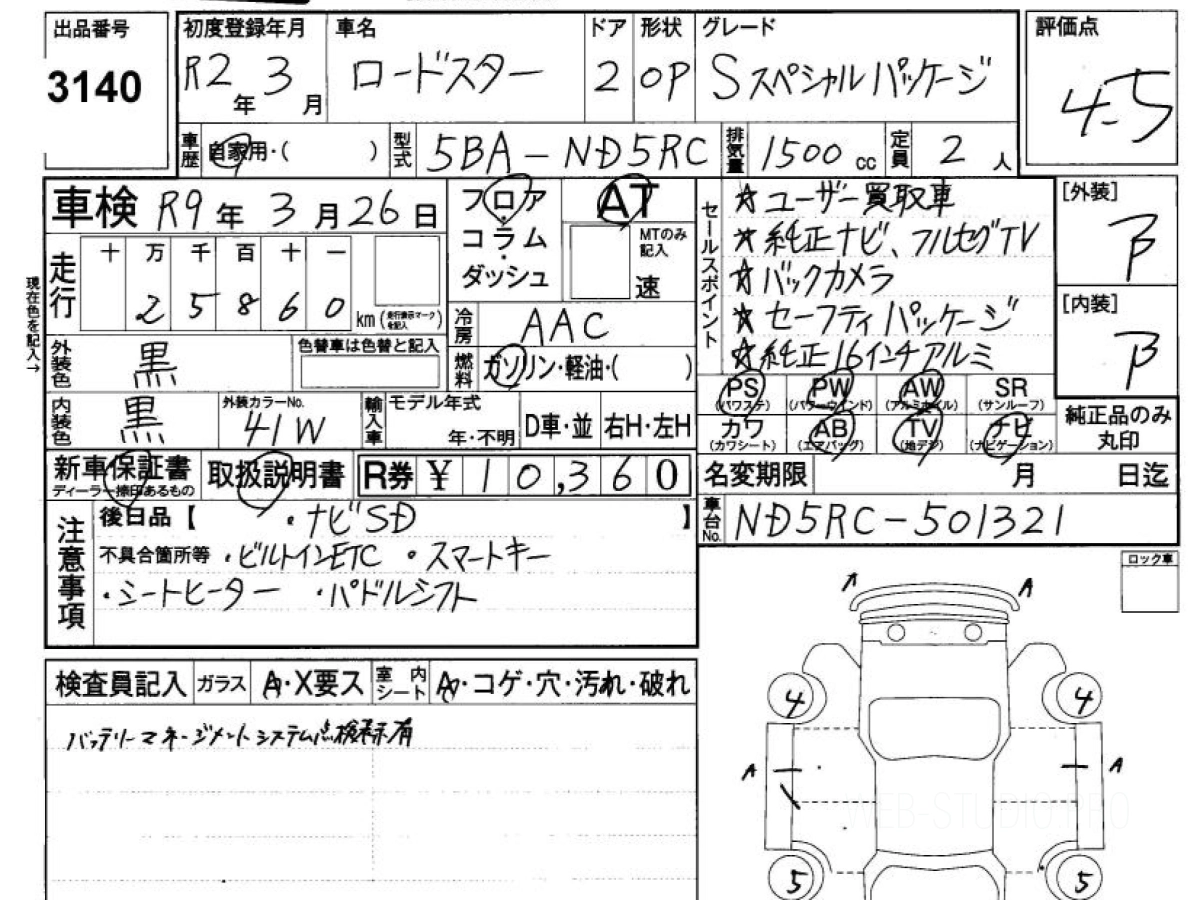 出品番号
3140
初度登録年月 車名 ドア 形状 グレード 評価点
R2年 3月 ロードスター 2 OP Sスペシャルパッケージ 4.5
車歴 自家用・( ) 型式 5BA-ND5RC 排気量 1500cc 定員 2人
車検 R9年 3月26日
フロア・コラム・ダッシュ
AT
MTのみ記入
速
セールスポイント
☆ユーザー買取車
☆純正ナビ、フルセグTV
☆バックカメラ
☆セーフティパッケージ
☆純正16インチアルミ
[外装]
B
[内装]
B
現在色を記入→
走行
十 万 千 百 十 一
2 5 8 6 0 km (走行表示マークを記入)
冷房 AAC
外装色 黒 色替車は色替と記入
燃料 ガソリン・軽油・( )
内装色 黒 外装カラーNo. 41W
輸入車 モデル年式 年・不明 D車・並 右H・左H
PS (パワステ) PW (パワーウインド) AW (アルミホイル) SR (サンルーフ)
カワ (カワシート) AB (エアバッグ) TV (地デジ) ナビ (ナビゲーション)
純正品のみ丸印
新車保証書 ディーラー捺印あるもの 取扱説明書 R券 ¥10,360
名変期限 月 日迄
車台No. ND5RC-501321
注意事項
後日品【 ・ナビSD 】
不具合箇所等 ・ビルトインETC ・スマートキー
・シートヒーター ・パドルシフト
ロック車
検査員記入 ガラス A・X要ス 室内シート A・コゲ・穴・汚れ・破れ
バッテリーマネージメントシステム点検表示有
A
4 4
A A
5 5
WEB-STUDIO.PRO